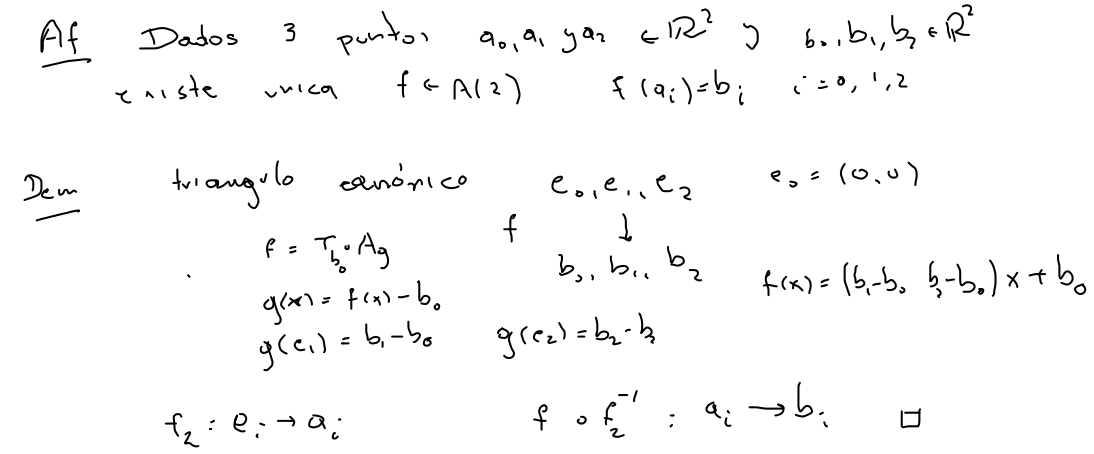 Af Dados 3 puntos a₀, a₁ y a₂ ∈ ℝ² y b₀, b₁, b₂ ∈ ℝ²
existe unica f ∈ A(2) f(aᵢ)=bᵢ i=0, 1, 2
Dem triangulo canónico e₀, e₁, e₂ e₀ = (0,0)
f ↓
f = T_b₀ ∘ Ag b₀, b₁, b₂
g(x) = f(x) - b₀ f(x) = (b₁-b₀ b₂-b₀) x + b₀
g(e₁) = b₁-b₀ g(e₂) = b₂-b₂
f₂ : eᵢ → aᵢ f ∘ f₂⁻¹ : aᵢ → bᵢ □